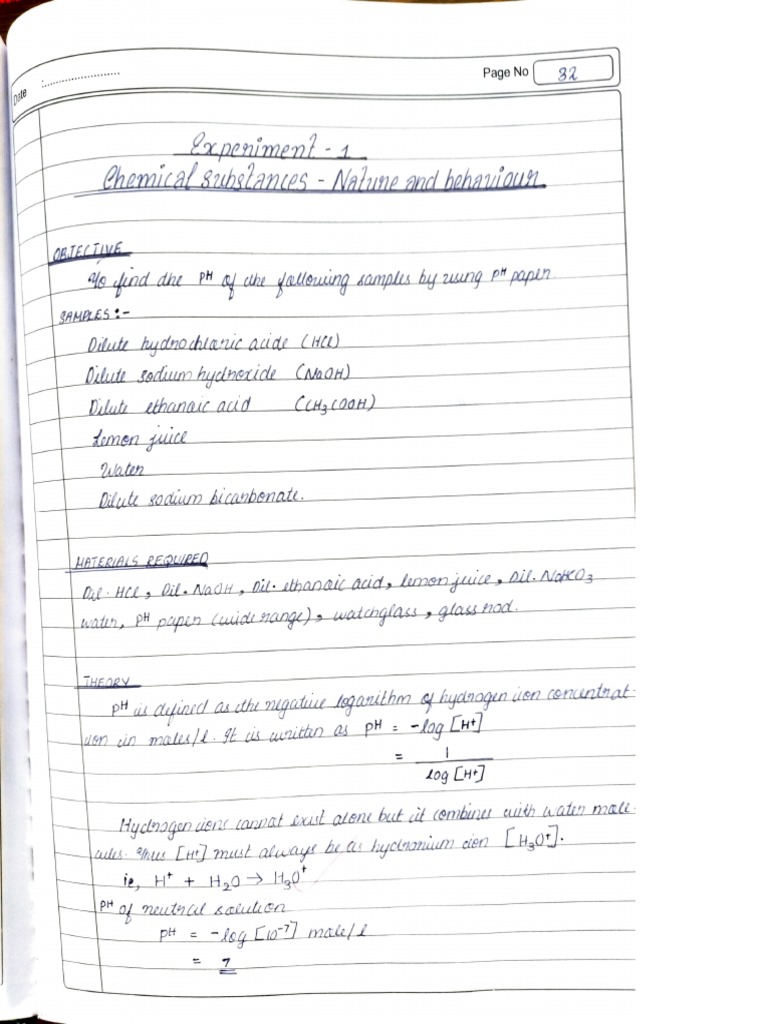 Date :........................
Page No 32
Experiment - 1
Chemical substances - Nature and behaviour
OBJECTIVE
To find the pH of the following samples by using pH paper.
SAMPLES:-
Dilute hydrochloric acide (HCl)
Dilute sodium hydroxide (NaOH)
Dilute ethanoic acid (CH3COOH)
Lemon juice
Water
Dilute sodium bicarbonate.
MATERIALS REQUIRED
Dil. HCl, Dil. NaOH, Dil. ethanoic acid, lemon juice, Dil. NaHCO3
water, pH paper (wide range), watchglass, glass rod.
THEORY
pH is defined as the negative logarithm of hydrogen ion concentrat-
ion in moles/l. It is written as pH = -log [H+]
= 1 / log [H+]
Hydrogen ions cannot exist alone but it combines with water mole-
cules. Thus [H+] must always be as hydronium ion [H3O+].
ie, H+ + H2O → H3O+
pH of neutral solution
pH = -log [10-7] mole/l
= 7